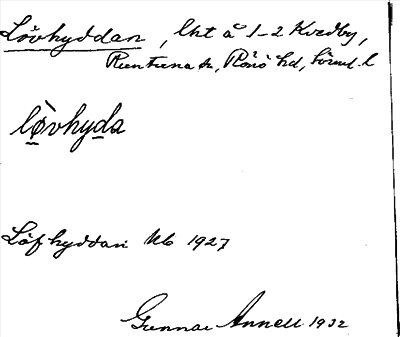 Lövhyddan, lht å 1-2 Kvedby,
Runtuna sn, Rönö hd, Sörml. l
lø̀vhyda
Löfhyddan Ub 1927
Gunnar Annell 1932